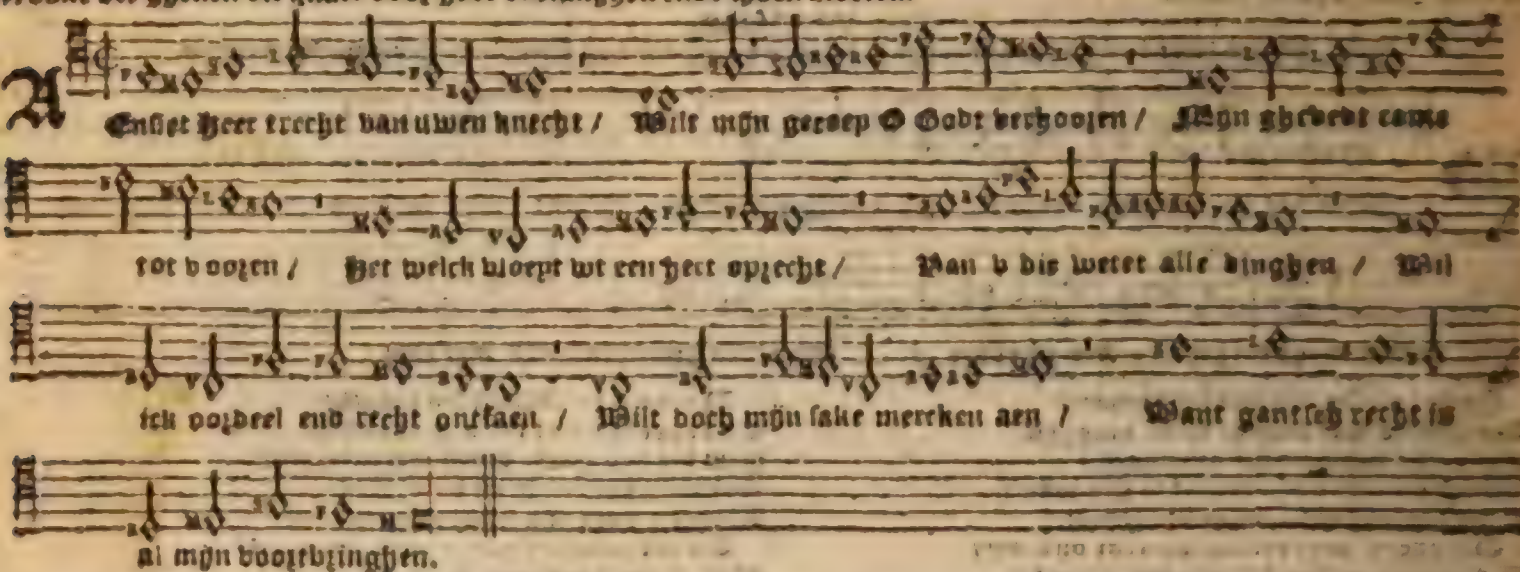 AEnsiet Heer trecht van uwen knecht / Wilt mijn geroep O Godt verhooren / Mijn ghebedt come
tot vooren / Het welck vloeyt wt een hert oprecht / Van v die wetet alle dinghen / Wil
ick oordeel end recht ontfaen / Wilt doch mijn sake mercken aen / Want gantsch recht is
al mijn voortbringhen.